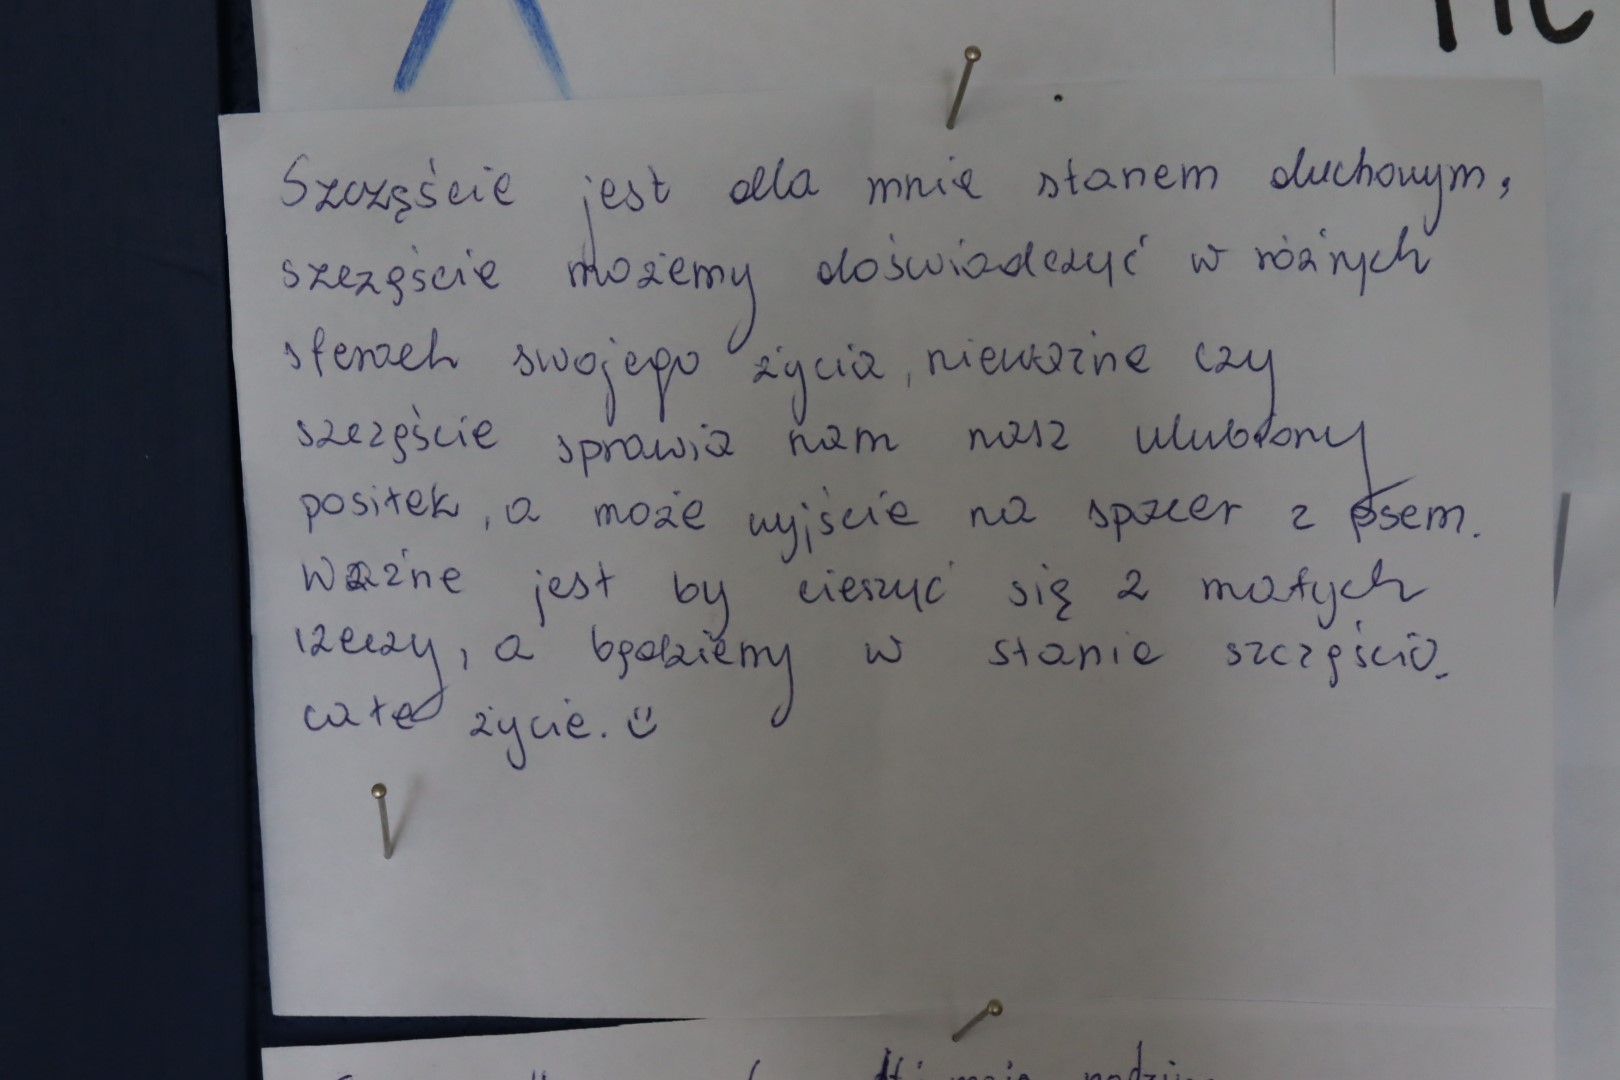 Szczęście jest dla mnie stanem duchowym,
szczęście możemy doświadczyć w różnych
sferach swojego życia, nieważne czy
szczęście sprawia nam nasz ulubiony
posiłek, a może wyjście na spacer z psem.
Ważne jest by cieszyć się z małych
rzeczy, a będziemy w stanie szczęścia
całe życie. ☺